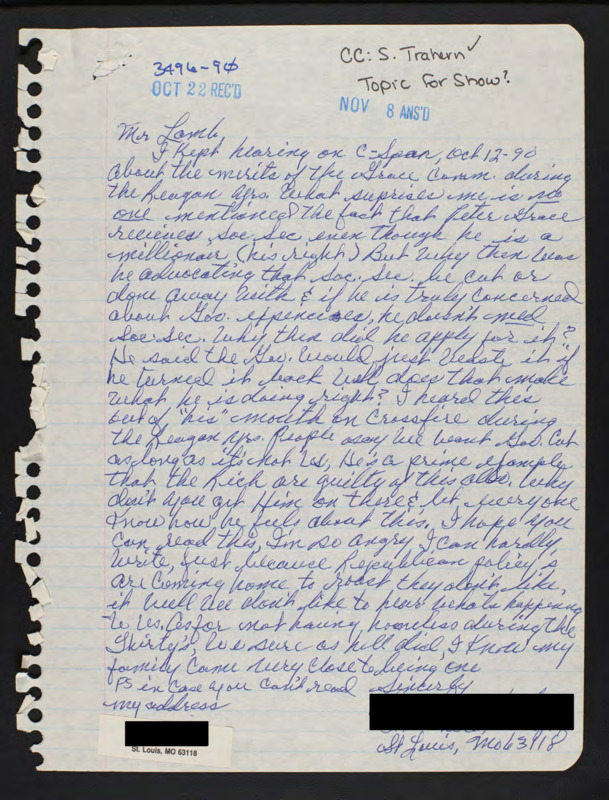 3496-90
OCT 22 REC'D
CC: S. Trahern ✓
Topic for Show?
NOV 8 ANS'D
Mr Lamb,
I kept hearing on C-Span, Oct 12-90
about the merits of the Grace Comm. during
the Reagan yrs. What suprises me is no
one mentioned the fact that Peter Grace
recieves Soc. Sec. even though he is a
millionair, (his right) But why then was
he advocating that Soc. Sec. be cut or
done away with & if he is truly concerned
about Gov. expences, he doesn't need
Soc. Sec. Why then did he apply for it?
He said the Gov. would just waste it if
he turned it back Well does that make
what he is doing right? I heard this
out of "his" mouth on Crossfire during
the Reagan yrs. People say we want Gov. Cut
as long as it's not us, He's a prime example
that the Rich are guilty of this also. Why
don't you get Him on there & let everyone
know how he feels about this. I hope you
can read this, I'm so angry I can hardly
write, just because Republican policy's
are coming home to roost they don't like
it well we don't like to hear what's happening
to us. As for not having homeless during the
Thirty's, we sure as hell did, I know my
family came very close to being one
PS in case you can't read Sincerly
my address
St. Louis, MO 63118
St Louis, Mo 63118